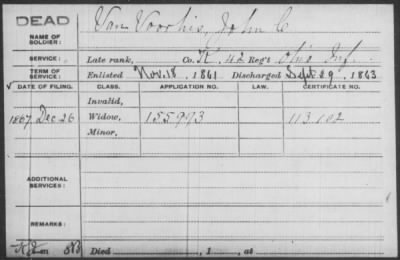 DEAD
NAME OF SOLDIER: Van Voorhis, John C
SERVICE: Late rank, Co. K, 42 Reg't Ohio Inf.
TERM OF SERVICE: Enlisted Nov. 18, 1861 Discharged Sept 29, 1863
DATE OF FILING. CLASS. APPLICATION NO. LAW. CERTIFICATE NO.
Invalid,
1867 Dec 26 Widow, 155993 113102
Minor,
ADDITIONAL SERVICES:
REMARKS:
Died , 1 , at